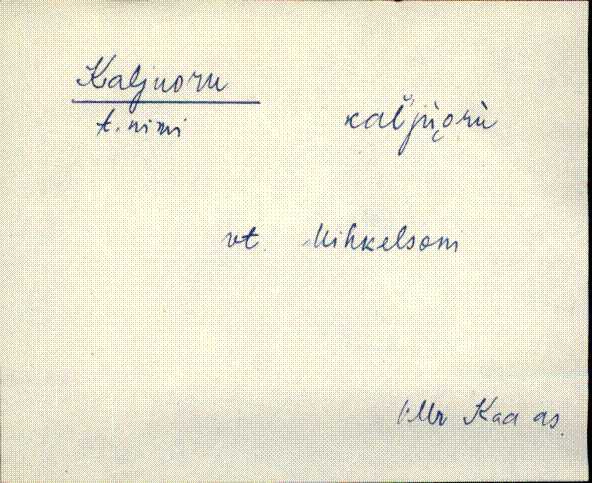 Kaljuoru
t. nimi
kaľjùo̭rù
vt. Mihkelsoni
Kaa as.